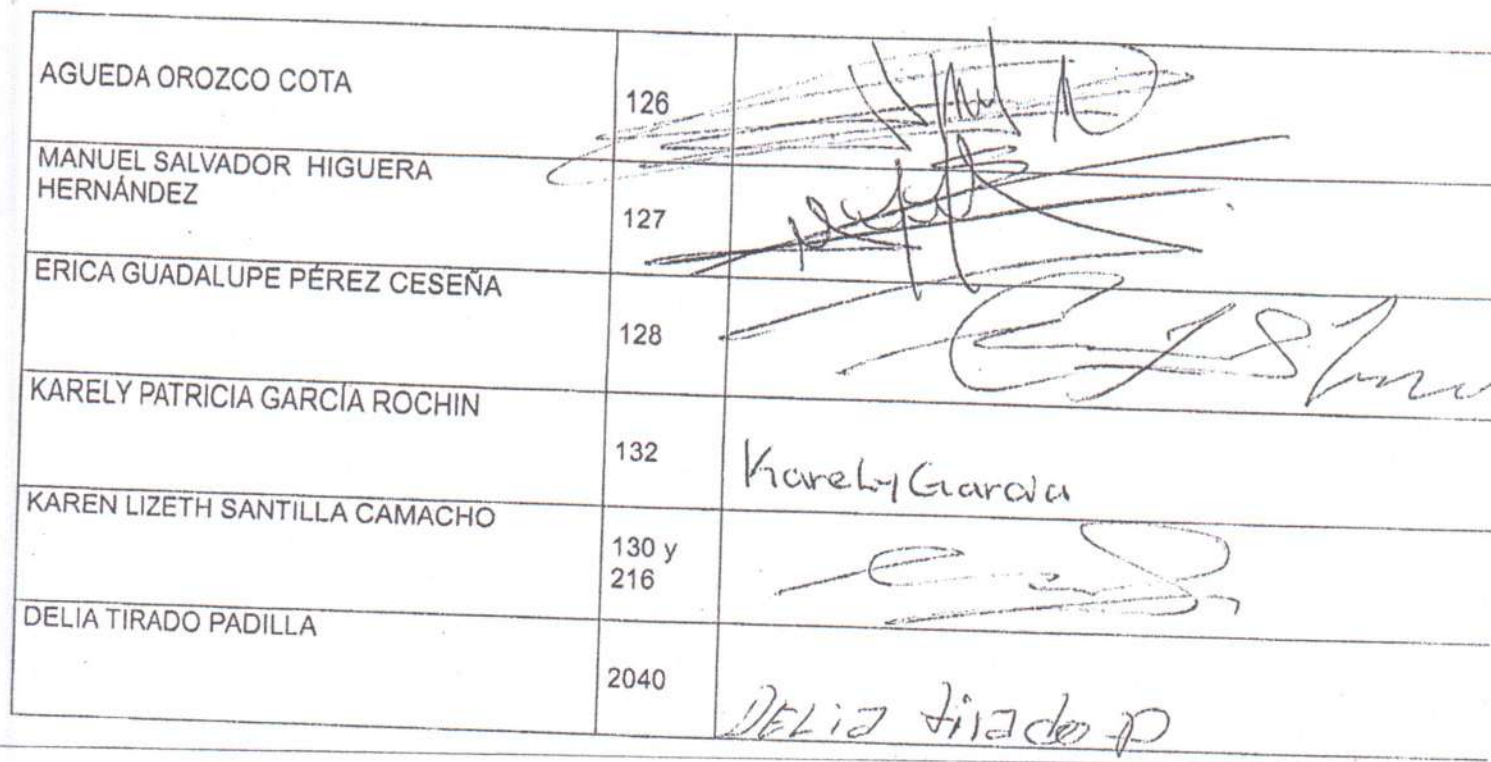 AGUEDA OROZCO COTA
126
MANUEL SALVADOR HIGUERA
HERNÁNDEZ
127
ERICA GUADALUPE PÉREZ CESEÑA
128
KARELY PATRICIA GARCÍA ROCHIN
132
Karely Garcia
KAREN LIZETH SANTILLA CAMACHO
130 y
216
DELIA TIRADO PADILLA
2040
DELia tirado p